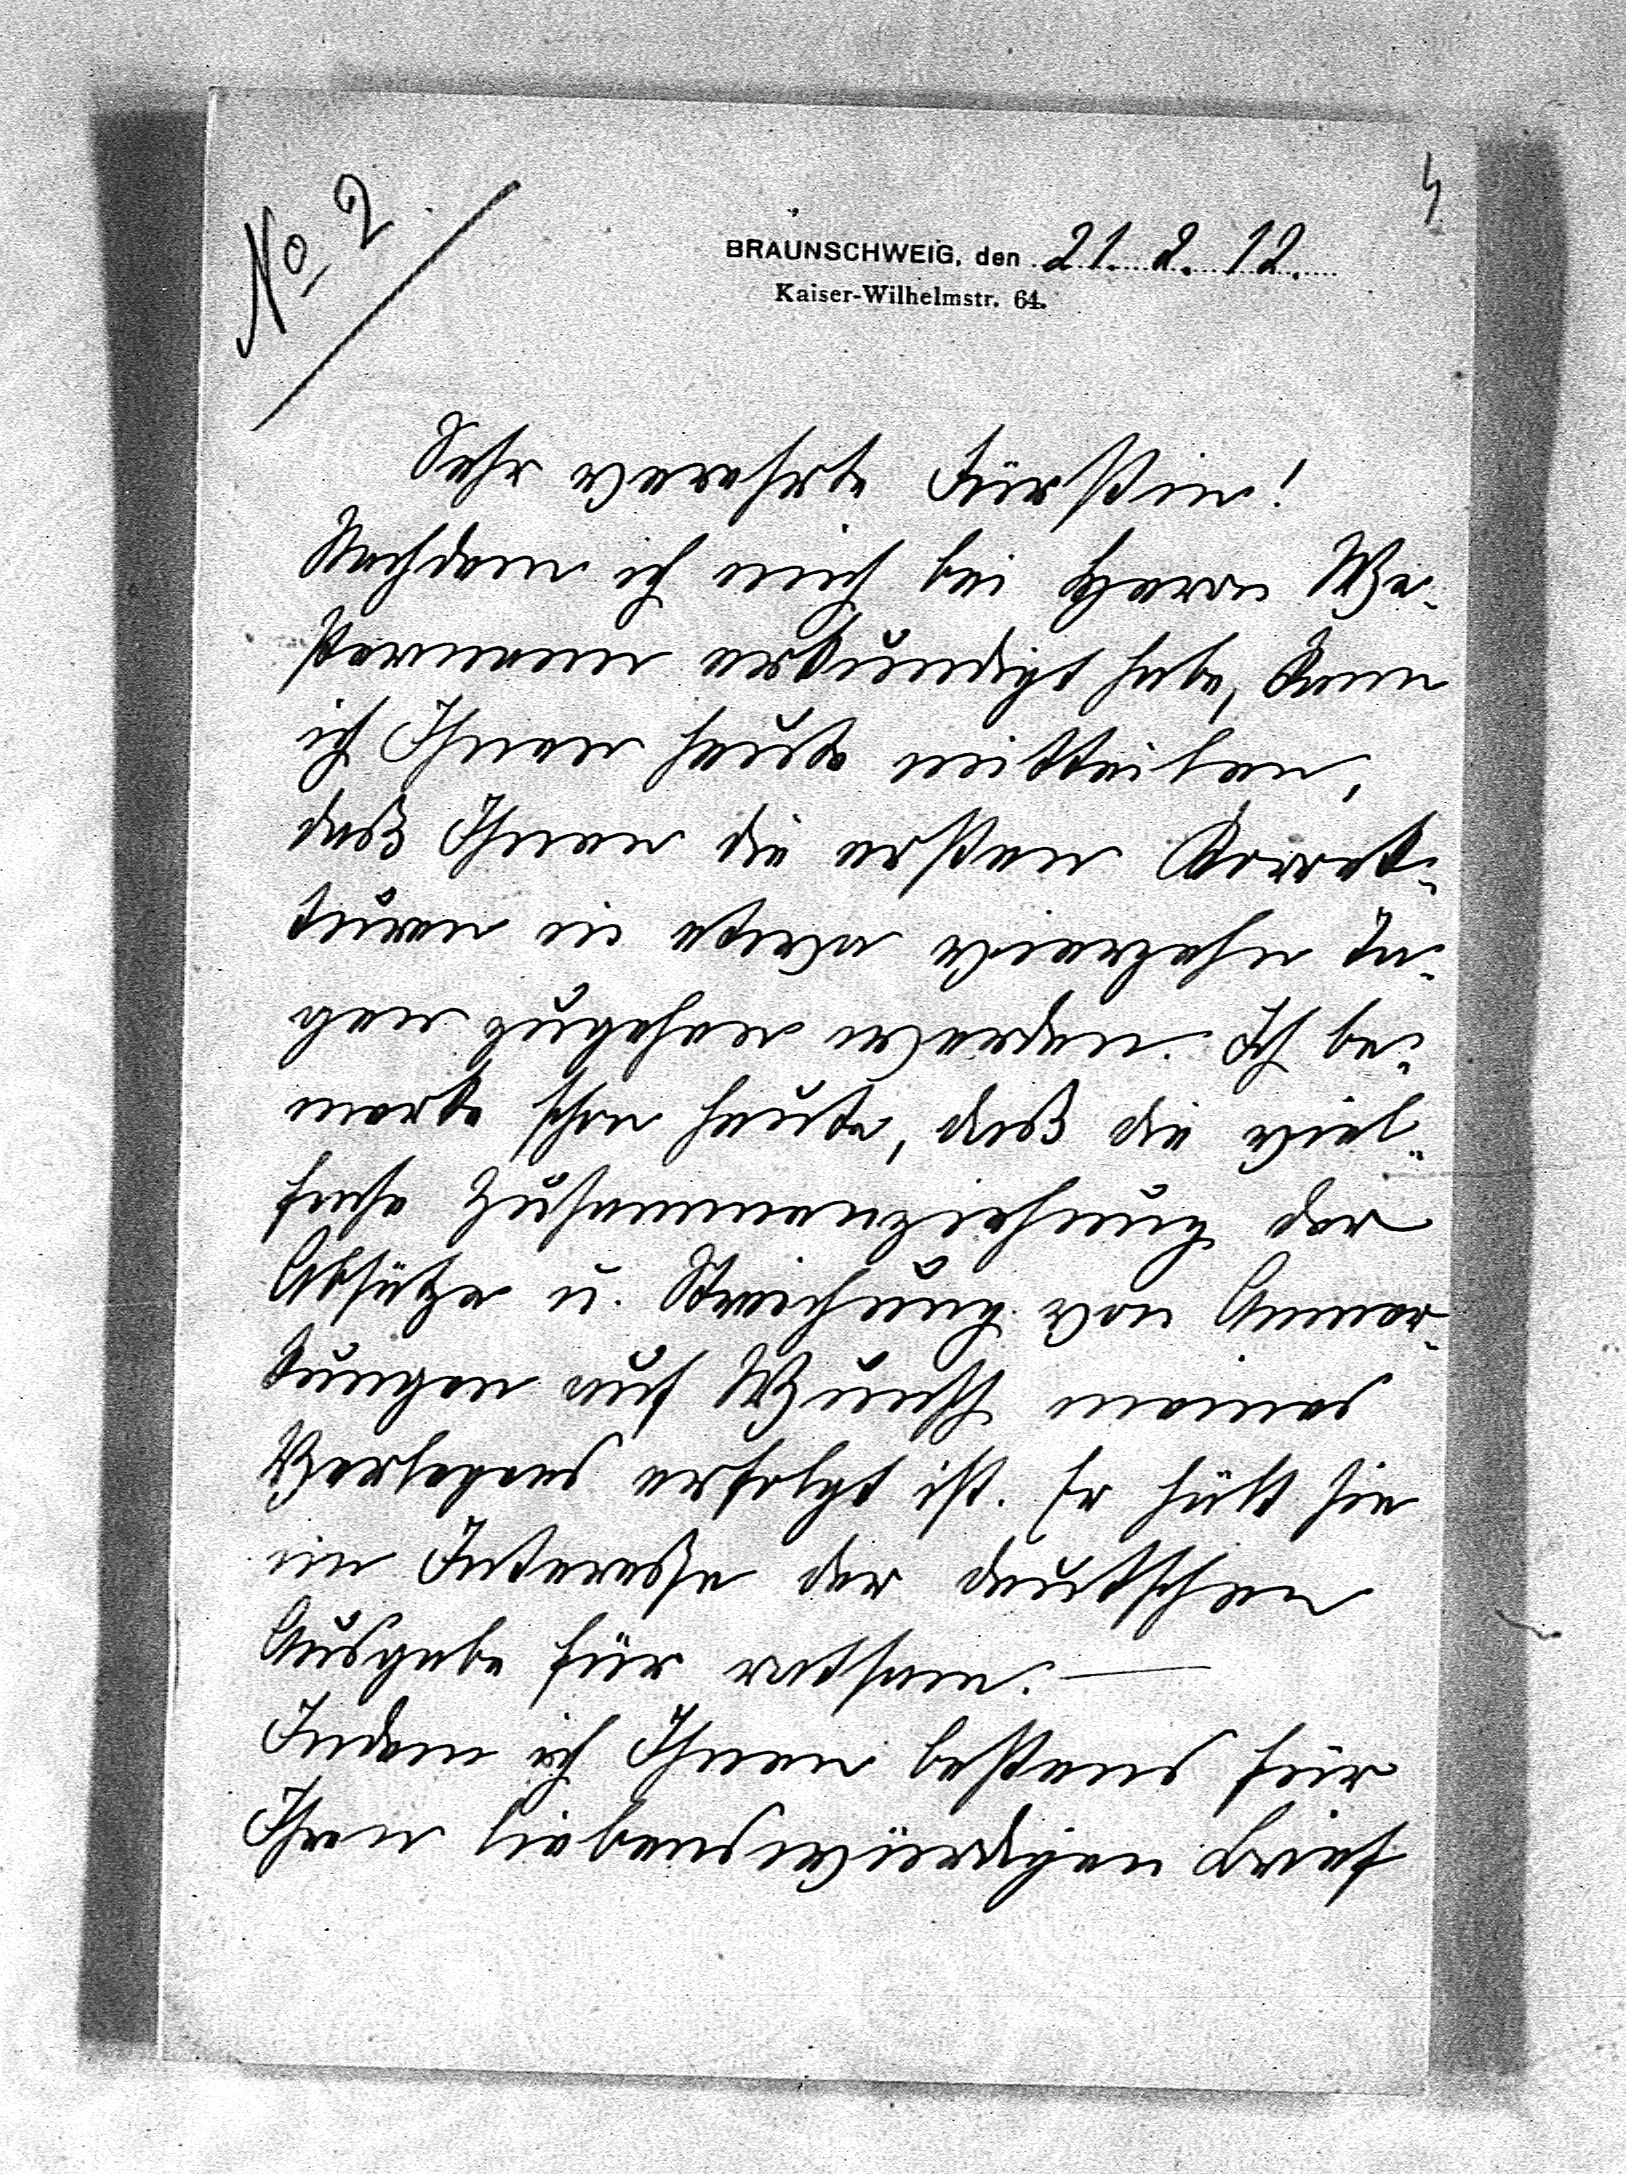 No 2
4
BRAUNSCHWEIG, den 21. 2. 12.
Kaiser-Wilhelmstr. 64.
Sehr verehrte Fürstin!
Nachdem ich mich bei Herrn We-
stermann erkundigt habe, kann
ich Ihnen heute mitteilen,
daß Ihnen die ersten Korrek-
turen in etwa vierzehn Ta-
gen zugehen werden. Ich be-
merke schon heute, daß die viel-
fache Zusammenziehung der
Absätze u. Streichung von Anmer-
kungen auf Wunsch meines
Verlegers erfolgt ist. Er hält sie
im Interesse der deutschen
Ausgabe für ratsam. —
Indem ich Ihnen bestens für
Ihren liebenswürdigen Brief